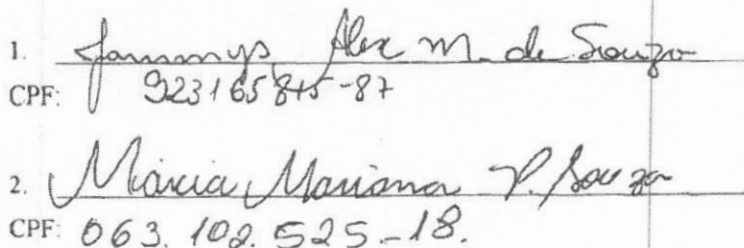 1. Jammys Alex M. de Souza
CPF: 923165845-87
2. Márcia Mariana P. Souza
CPF: 063.102.525-18.